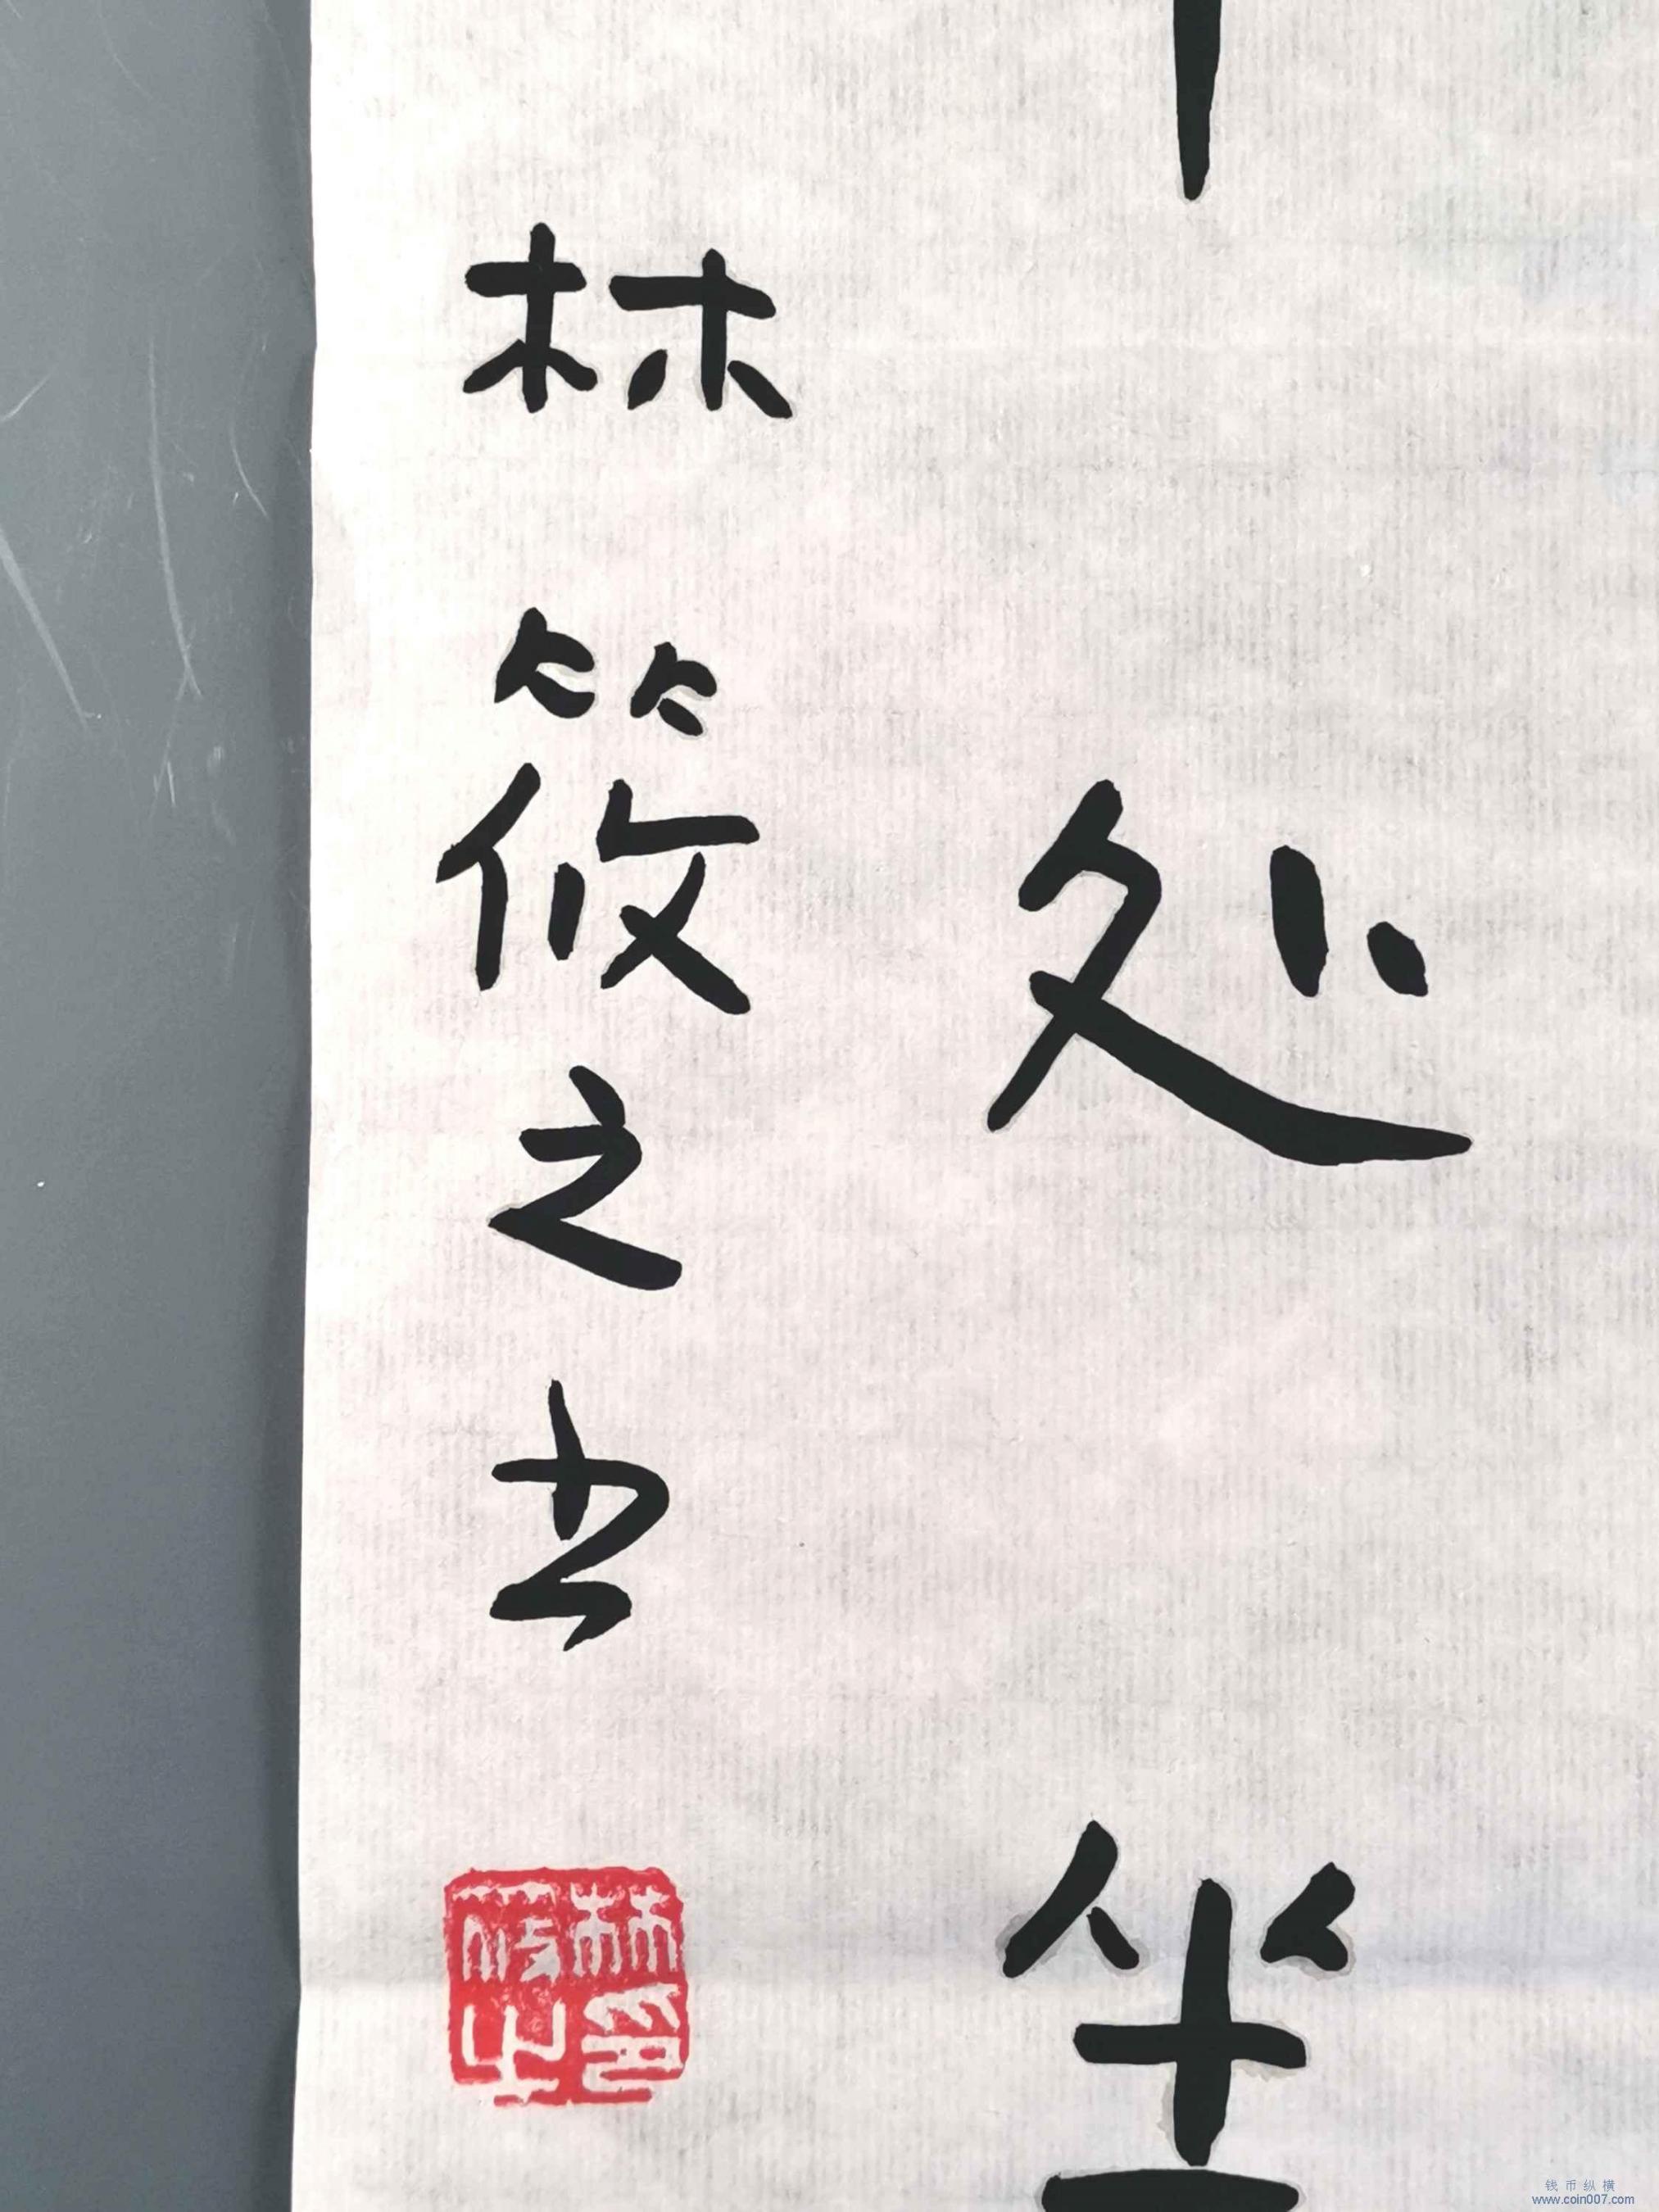 处坐
林筱之书
林筱之印
钱币纵横
www.coin007.com